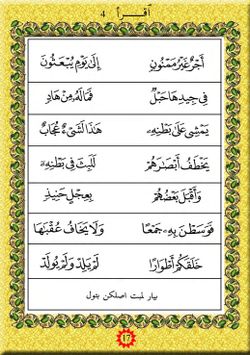 أقرأ 4
أَجْرٌ غَيْرُ مَمْنُونٍ إِلَى يَوْمِ يُبْعَثُونَ
فِي جِيدِهَا حَبْلٌ فَمَا لَهُ مِنْ هَادٍ
يَمْشِي عَلَى بَطْنِهِ هَذَا لَشَيْءٌ عُجَابٌ
يَخْطَفُ أَبْصَارَهُمْ لَلَبِثَ فِي بَطْنِهِ
وَأَقْبَلَ بَعْضُهُمْ بِعِجْلٍ حَنِيذٍ
فَوَسَطْنَ بِهِ جَمْعًا وَلَا يَخَافُ عُقْبَاهَا
خَلَقَكُمْ أَطْوَارًا لَمْ يَلِدْ وَلَمْ يُولَدْ
بيار لمبت اصلكن بتول
١٧